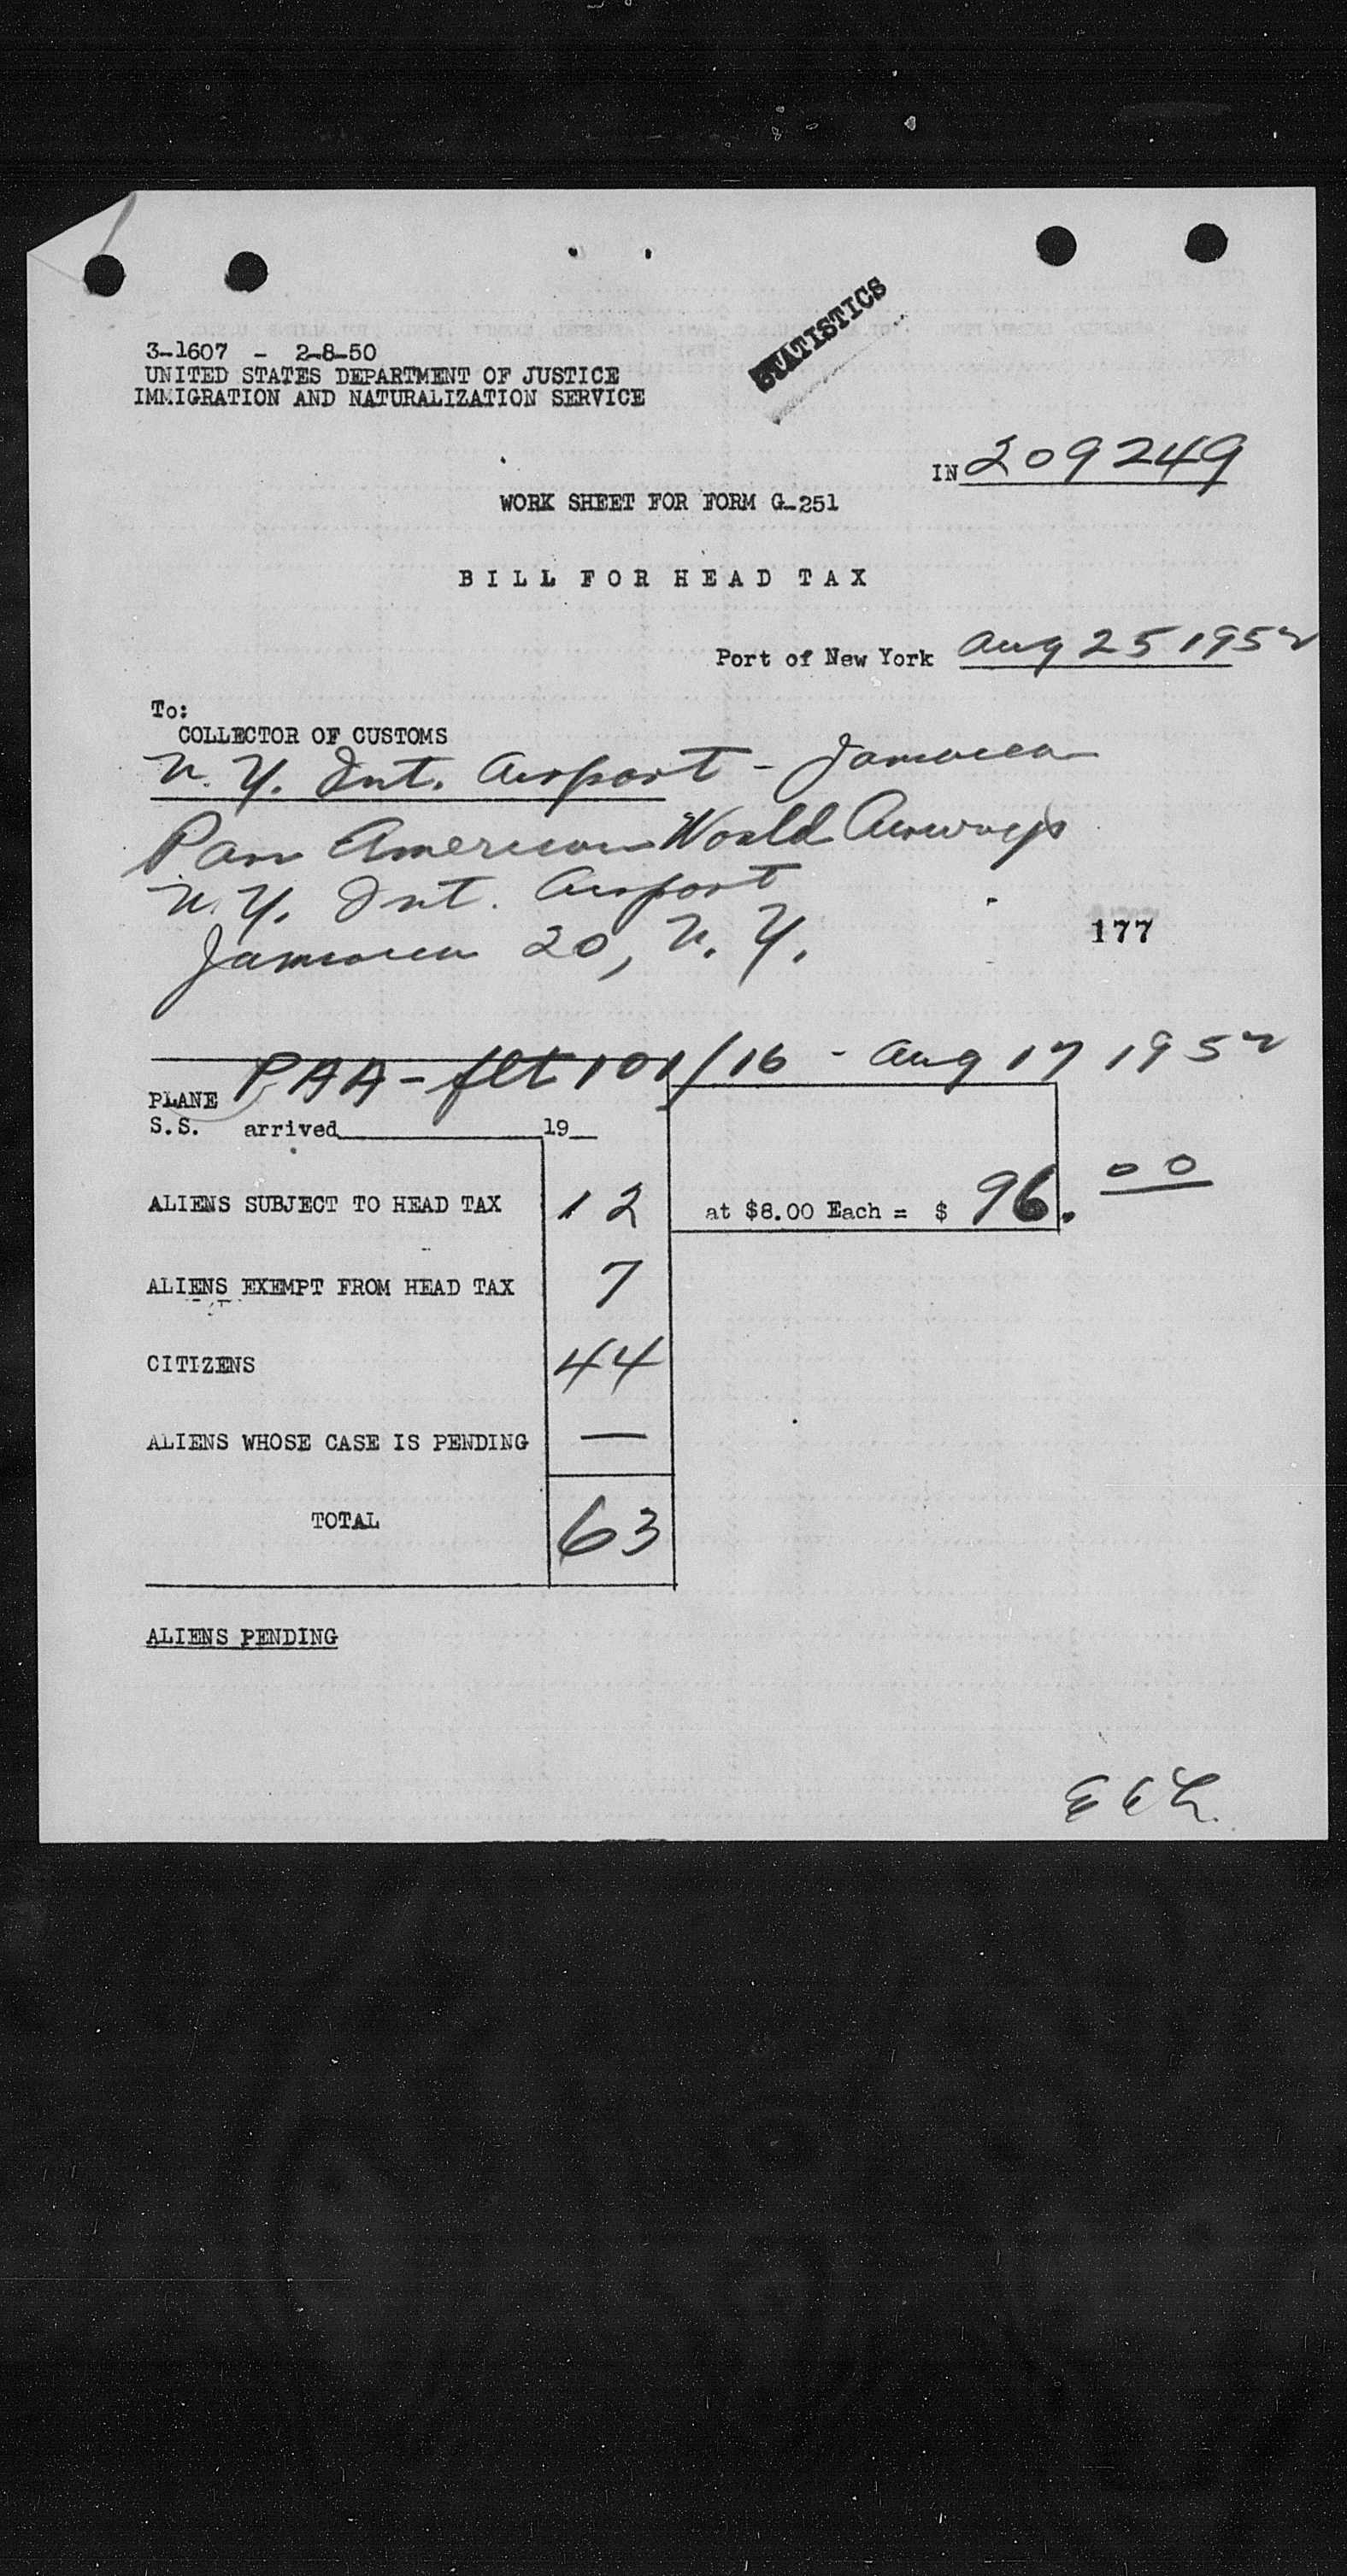 STATISTICS
3-1607 - 2-8-50
UNITED STATES DEPARTMENT OF JUSTICE
IMMIGRATION AND NATURALIZATION SERVICE
IN 209249
WORK SHEET FOR FORM G-251
BILL FOR HEAD TAX
Port of New York Aug 25 1952
To:
COLLECTOR OF CUSTOMS
N.Y. Int. Airport - Jamaica
Pan American World Airways
N.Y. Int. Airport
Jamaica 20, N.Y.
177
PAA - flt 101/16 - Aug 17 1952
PLANE
S.S. arrived 19
ALIENS SUBJECT TO HEAD TAX 12 at $8.00 Each = $ 96.00
ALIENS EXEMPT FROM HEAD TAX 7
CITIZENS 44
ALIENS WHOSE CASE IS PENDING —
TOTAL 63
ALIENS PENDING